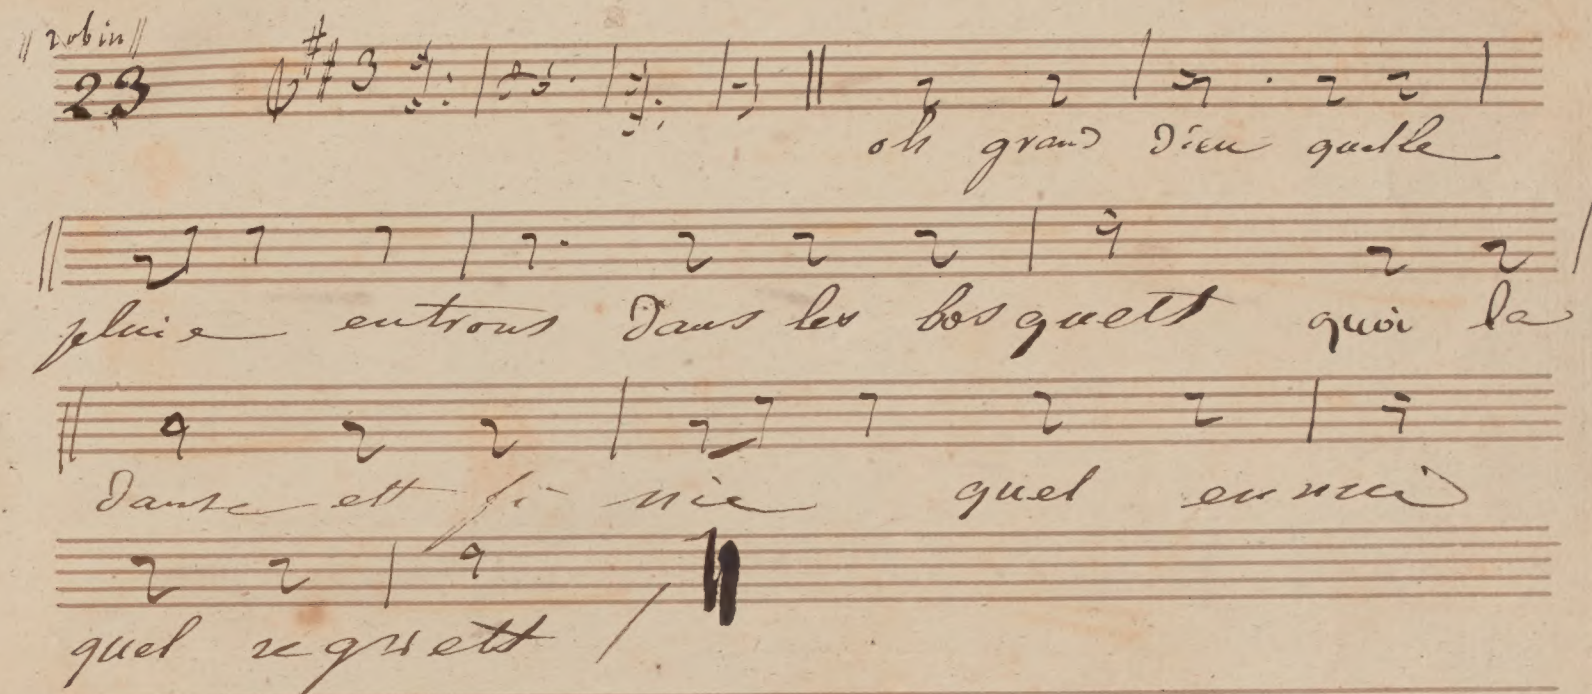 // robin //
23 3
oh grand dieu quelle
pluie entrons dans les bosquett quoi la
danse ett fi nie quel ennui
quel regrett